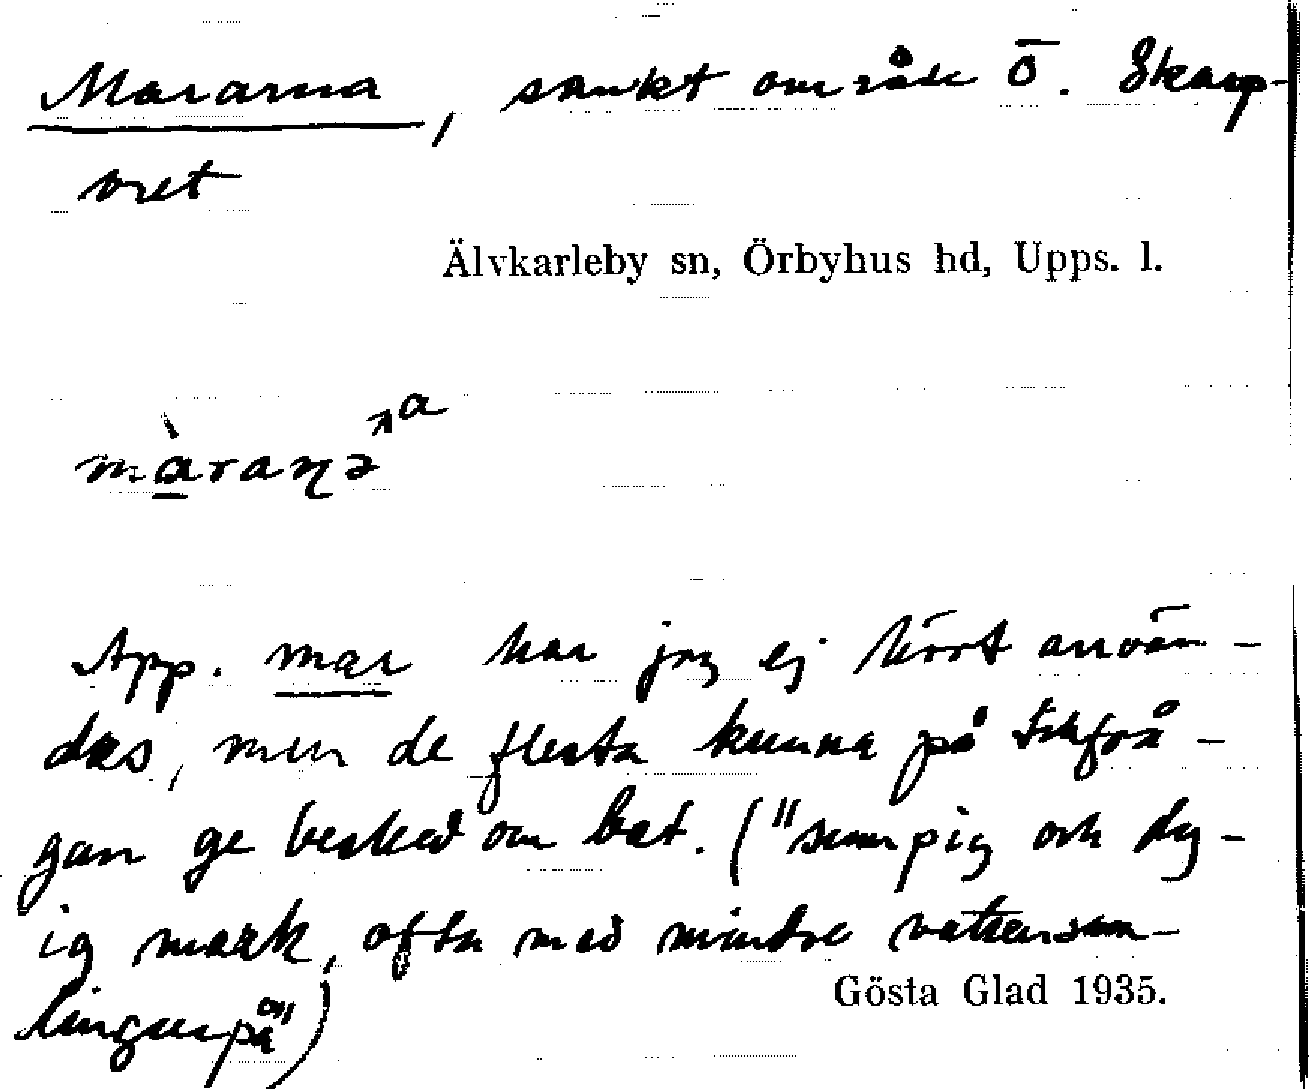 Mararna, sankt område Ö. Skarp-
oret
Älvkarleby sn, Örbyhus hd, Upps. l.
a
màraṇə
App. mar har jag ej hört använ-
das, men de flesta kunna på tillfrå-
gan ge besked om bet. ("sumpig och dy-
ig mark, ofta med mindre vattensam-
lingar på")
Gösta Glad 1935.